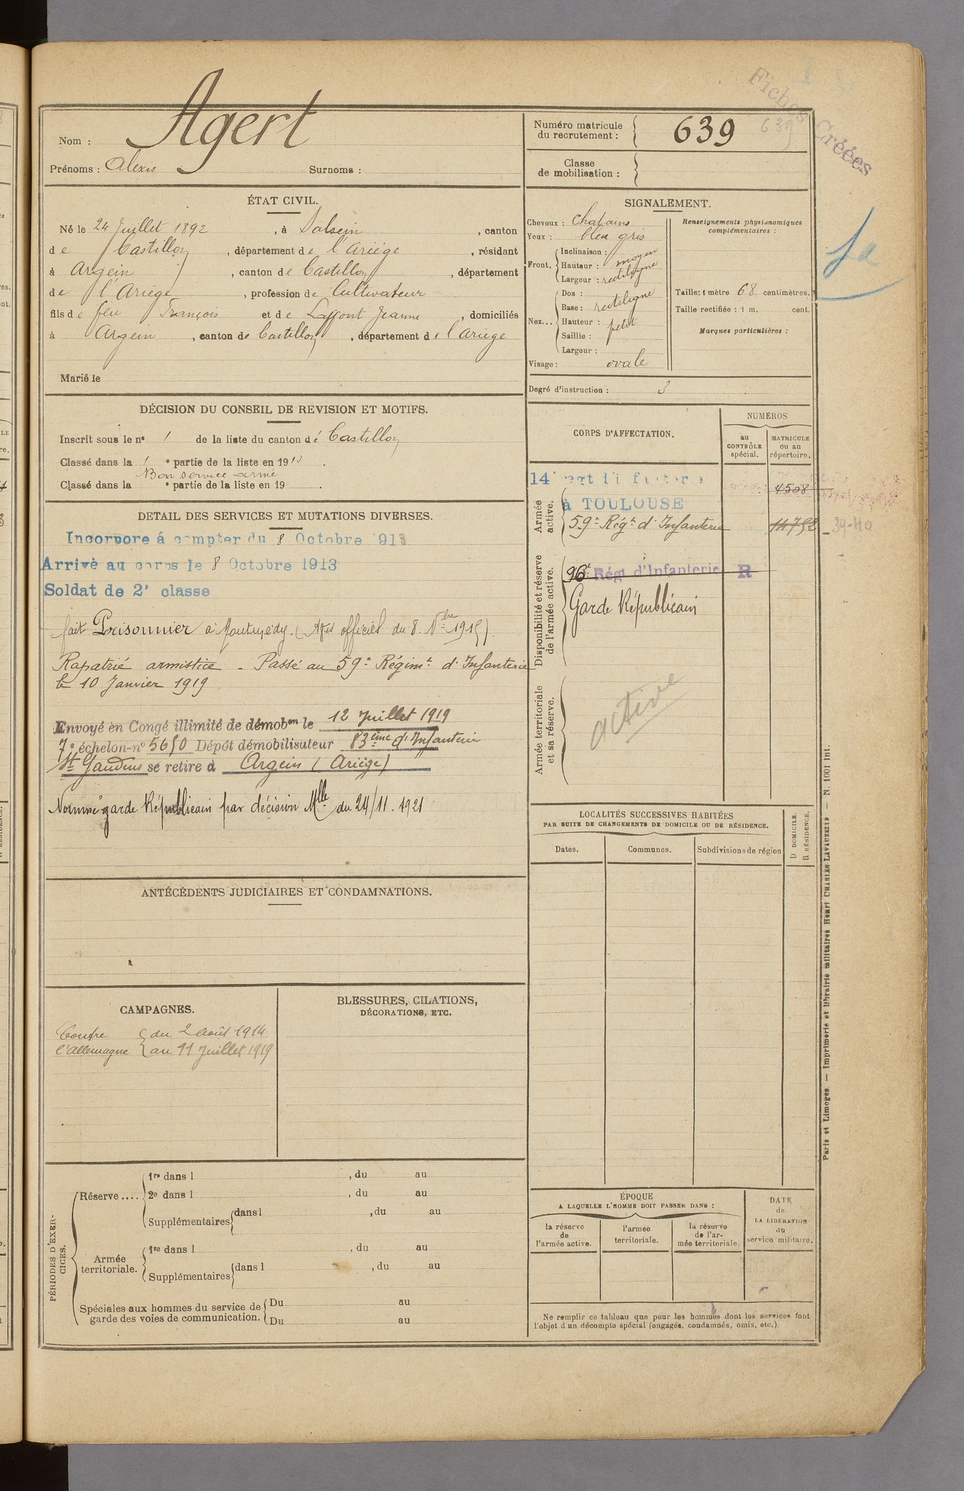 Fiches Créées
Nom : Agert
Prénoms : Alexis Surnoms :
Numéro matricule du recrutement : 639
639
Classe de mobilisation :
ÉTAT CIVIL.
Né le 24 Juillet 1892, à Salsein, canton
de Castillon, département de l'Ariège, résidant
à Argein, canton de Castillon, département
de l'Ariège, profession de Cultivateur
fils de feu François et de Laffont Jeanne, domiciliés
à Argein, canton de Castillon, département de l'Ariège
Marié le
SIGNALEMENT.
Cheveux : Chatains
Yeux : bleu gris
Front. Inclinaison :
Hauteur : moyen
Largeur : rectiligne
Nez... Dos :
Base : rectiligne
Hauteur : petit
Saillie :
Largeur :
Visage : ovale
Renseignements physionomiques complémentaires :
Taille : 1 mètre 68 centimètres.
Taille rectifiée : 1 m. cent.
Marques particulières :
Degré d'instruction : 3
DÉCISION DU CONSEIL DE REVISION ET MOTIFS.
Inscrit sous le n° 1 de la liste du canton de Castillon
Classé dans la 1e partie de la liste en 191
Bon service armé
Classé dans la e partie de la liste en 19
DETAIL DES SERVICES ET MUTATIONS DIVERSES.
Incorporé à compter du 8 Octobre 1913
Arrivé au corps le 8 Octobre 1913
Soldat de 2e classe
fait Prisonnier à Montmédy. (Avis officiel du 8 1915).
Rapatrié armistice - Passé au 59e Régimt d'Infanterie
le 10 Janvier 1919
Envoyé en Congé illimité de démobon le 12 Juillet 1919
7e échelon n° 5650 Dépôt démobilisateur 83ème d'Infanterie
St Gaudens se retire à Argein (Ariège)
Nommé garde Républicain par décision Mlle du 24/11.1921
CORPS D'AFFECTATION.
NUMÉROS
au CONTRÔLE spécial.
MATRICULE ou au répertoire.
Armée active.
14e Régt d'Infanterie
à TOULOUSE
4508
59e Régt d'Infanterie
14752
Disponibilité et réserve de l'armée active.
96e Régt d'Infanterie R
Garde Républicain
Armée territoriale et sa réserve.
active
LOCALITÉS SUCCESSIVES HABITÉES
PAR SUITE DE CHANGEMENTS DE DOMICILE OU DE RÉSIDENCE.
Dates. Communes. Subdivisions de région
D DOMICILE. R RÉSIDENCE.
ANTÉCÉDENTS JUDICIAIRES ET CONDAMNATIONS.
CAMPAGNES.
Contre l'Allemagne
du 2 Août 1914
au 11 Juillet 1919
BLESSURES, CITATIONS,
DÉCORATIONS, ETC.
PÉRIODES D'EXERCICES.
Réserve.... 1re dans l , du au
2e dans l , du au
Supplémentaires dans l , du au
Armée territoriale. 1re dans l , du au
Supplémentaires dans l , du au
Spéciales aux hommes du service de garde des voies de communication. Du au
Du au
ÉPOQUE
A LAQUELLE L'HOMME DOIT PASSER DANS :
la réserve de l'armée active.
l'armée territoriale.
la réserve de l'armée territoriale.
DATE de LA LIBÉRATION du service militaire.
Ne remplir ce tableau que pour les hommes dont les services font
l'objet d'un décompte spécial (engagés, condamnés, omis, etc.)
Paris et Limoges. — Imprimerie et librairie militaires Henri CHARLES-LAVAUZELLE — N. 1001 int.